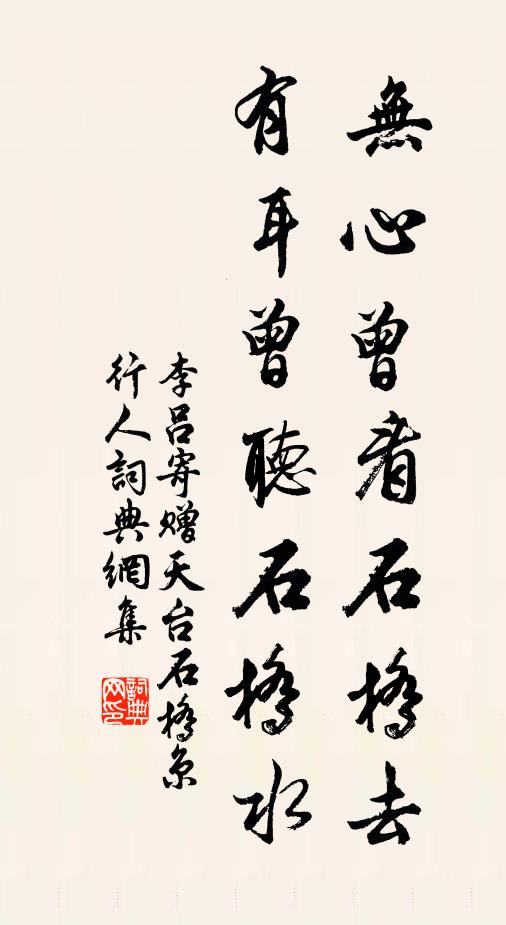 無心曾看石橋去
有耳曾聽石橋水
李呂寄贈天台石橋
行人詞典網集
詞典
网印